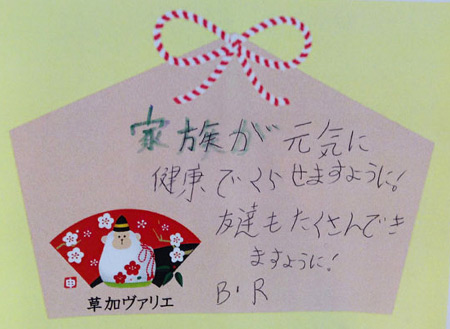 家族が元気に
健康でくらせますように!
友達もたくさんでき
ますように!
B・R
申
草加ヴァリエ